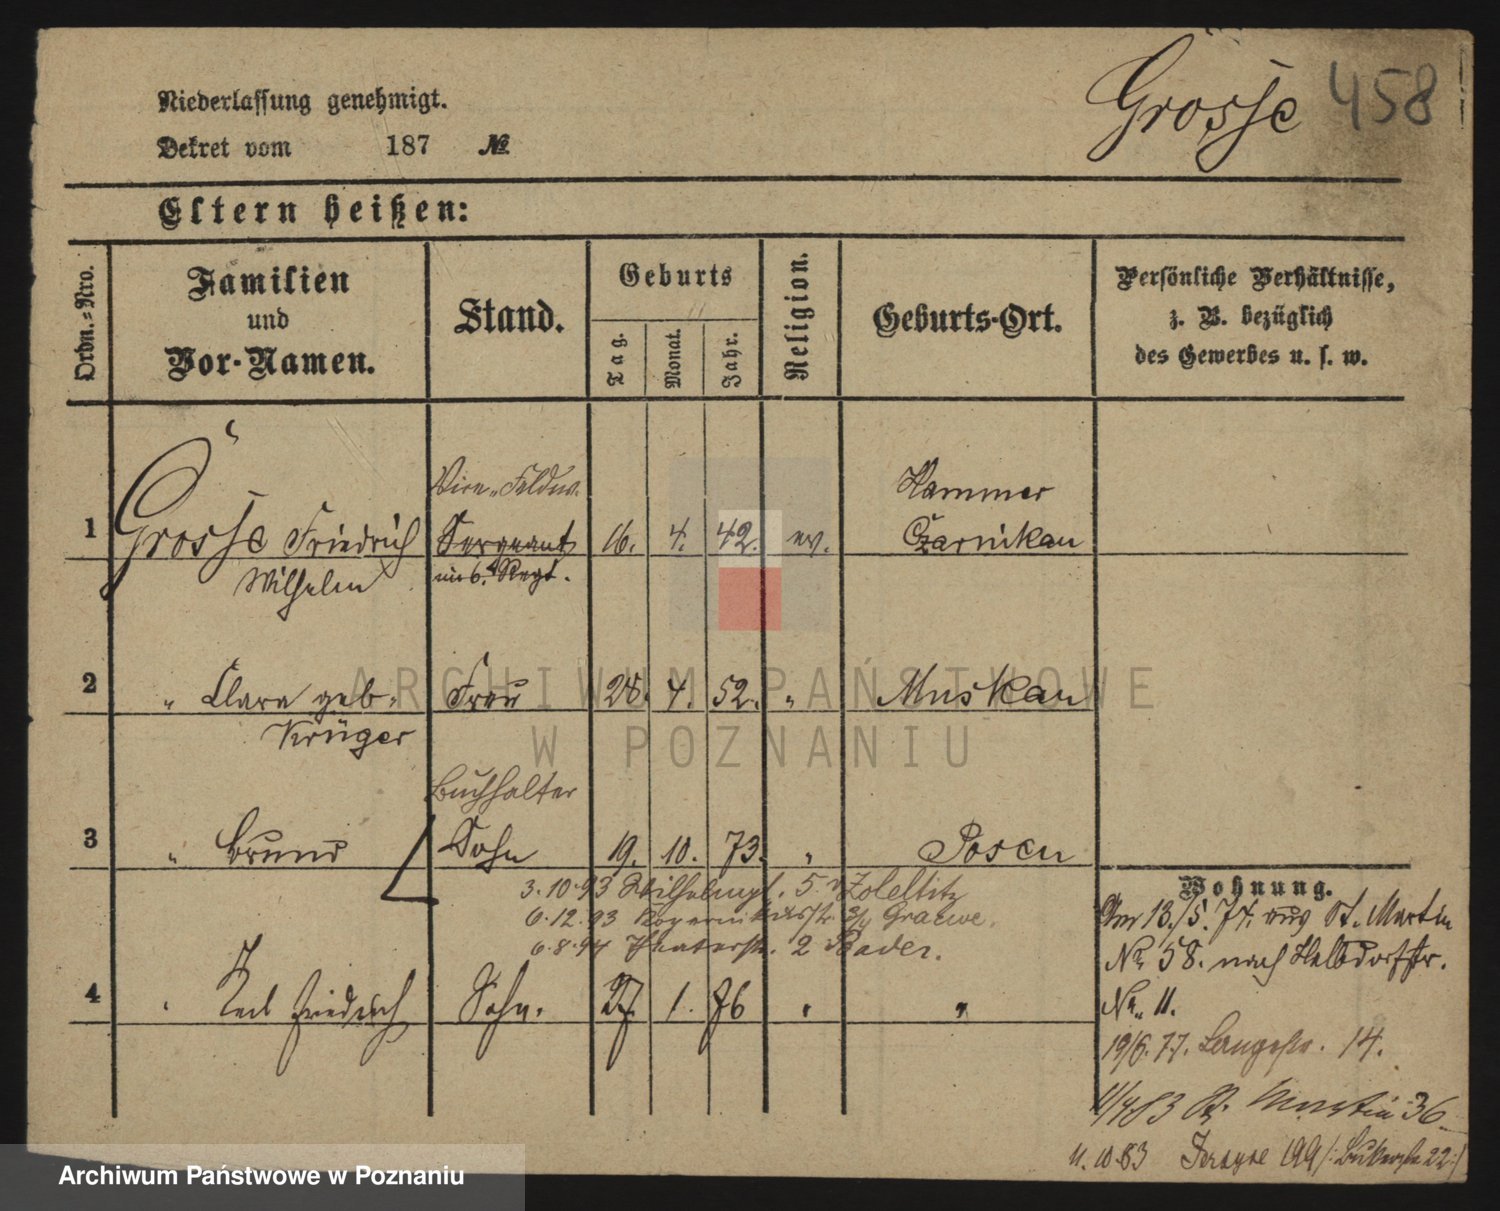 Niederlassung genehmigt.
Grosse 458
Dekret vom 187 №
Eltern heißen:
Ordn.-Nro.
Familien
und
Vor-Namen.
Stand.
Geburts
Tag.
Monat.
Jahr.
Religion.
Geburts-Ort.
Persönliche Verhältnisse,
z. B. bezüglich
des Gewerbes u. s. w.
Vice-Feldw.
Hammer
1 Grosse Friedrich Sergeant 16. 4. 42. ev. Czarnikau
Wilhelm im 6. Regt.
2 " Clara geb. Frau 28. 4. 52. " Muskau
Krüger
Buchhalter
3 " Bruno Sohn 19. 10. 73. " Posen
3.10.93 Wilhelmspl. 5. v Zoleltitz
6.12.93 3/4 Grauwe.
6.8.94 Theaterstr. 2 Bader.
4 " Karl Friedrich Sohn. 27. 1. 76 " "
Wohnung.
Am 13./5. 74. aus St. Martin
No 58. nach Halbdorfstr.
No. 11.
19/6. 77. Langestr. 14.
11/4 83 St. Martin 36
11.10.83 Jersyce 199 /: Bukerstr 22 :/
ARCHIWUM PAŃSTWOWE
W POZNANIU
Archiwum Państwowe w Poznaniu